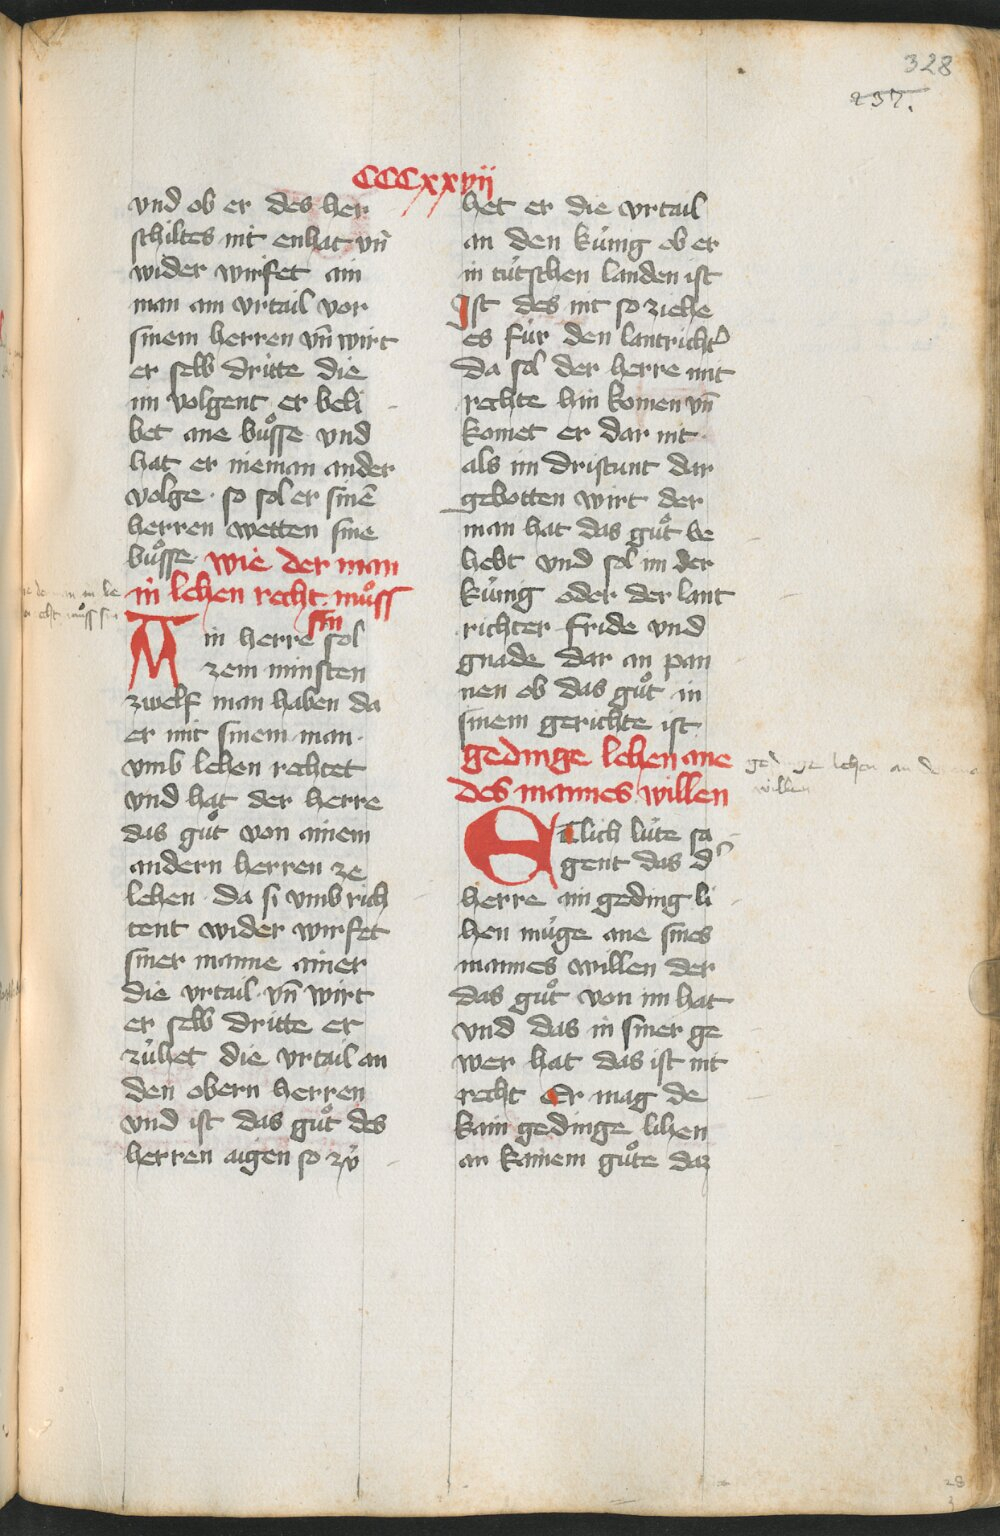 328
237.
CCCxxvii
vnd ob er des her
schiltes nit enhat vn̄
wider wirfet ain
man ain vrtail vor
sinem herren vn̄ wirt
er selb dritte die
im volgent er beli
bet ane bůsse vnd
hat er nieman ander
volge · so sol er sinē
herren wetten sine
bůsse · wie der man
in lehen recht můss
sin
Ain herre sol
zem minsten
zwelf man haben da
er mit sinem man ·
vmb lehen rechtet
vnd hat der herre
das gůt von ainem
andern herren ze
lehen · da si vmb rich
tent wider wirfet
siner manne ainer
die vrtail · vn̄ wirt
er selb dritte er
zúhet die vrtail an
den obern herren
vnd ist das gůt des
herren aigen so zú
het er die vrtail
an den kúnig ob er
in tútschen landen ist
Ist des nit so ziehe
es fúr den lantricht͛
da sol der herre mit
rechte hin komen vn̄
komet er dar nit ·
als im dristunt dar
gebotten wirt der
man hat das gůt be
hebt vnd sol im der
kúnig oder der lant
richter fride vnd
gnade dar an pan
nen ob das gůt in
sinem gerichte ist
gedinge lehen ane
des mannes willen
Etlich lúte sa
gent das d͛
herre ain geding li
hen múge ane sines
mannes willen der
das gůt von im hat
vnd das in siner ge
wer hat das ist nit
recht Er mag de
kain gedinge lihen
an kainem gůte daz
gedinge lehen an
willen
28